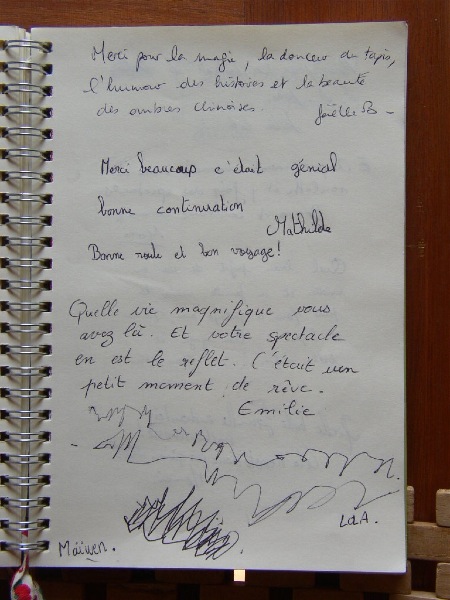 Merci pour la magie, la douceur du tapis,
l'humour des histoires et la beauté
des ombres chinoises. Joëlle B -
Merci beaucoup c'était génial
bonne continuation
Mathilde
Bonne route et bon voyage!
Quelle vie magnifique vous
avez là. Et votre spectacle
en est le reflet. C'était un
petit moment de rêve.
Emilie
LdA.
Maïwen.